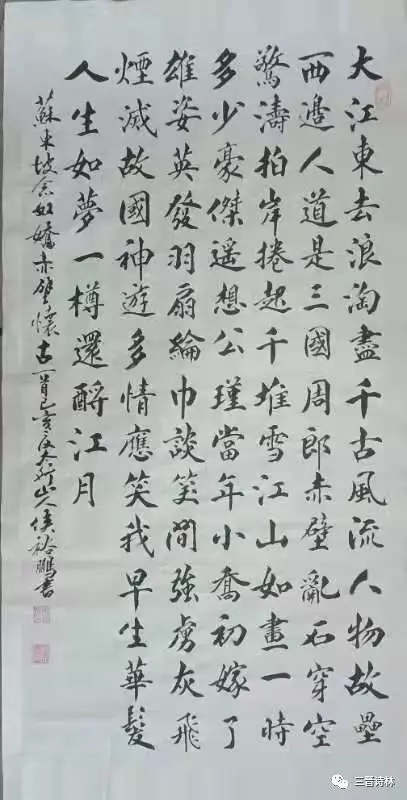 大江東去浪淘盡千古風流人物故壘
西邊人道是三國周郎赤壁亂石穿空
驚濤拍岸捲起千堆雪江山如畫一時
多少豪傑遥想公瑾當年小喬初嫁了
雄姿英發羽扇綸巾談笑間強虜灰飛
煙滅故國神遊多情應笑我早生華髮
人生如夢一樽還酹江月
蘇东坡念奴嬌赤壁懷古一首己亥夏太行山人侯裕鵬書
三晋诗林